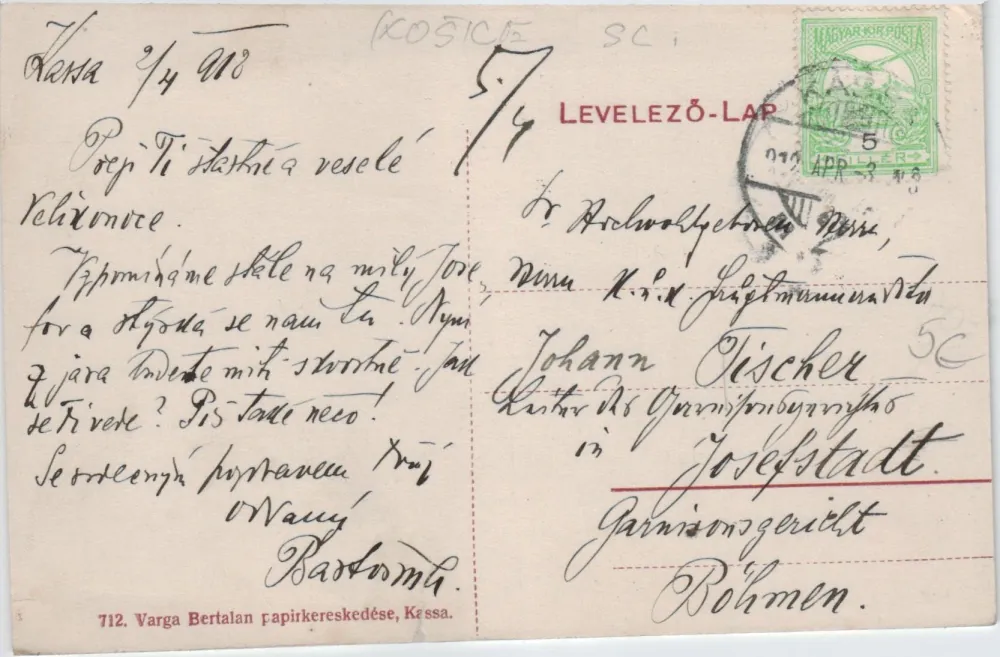 (KOŠICE SC.
Kassa 2/4 912
5/4
LEVELEZŐ-LAP
MAGYAR KIR. POSTA
5
FILLÉR
APR -3
Přeji Ti šťastné a veselé
Velikonoce.
Vzpomínáme stále na milý Jose-
fov a stýská se nám tu. Nyní
z jara budete míti skvostně. Jak
se Ti vede? Piš také něco!
Se srdečným pozdravem Tvůj
oddaný
Sr. Hochwohlgeboren Herrn,
Herrn K.u.K. Hauptmann
Johann Tischer
Leiter des Garnisonsgerichtes
in Josefstadt.
Garnisonsgericht
Böhmen.
5C
712. Varga Bertalan papirkereskedése, Kassa.